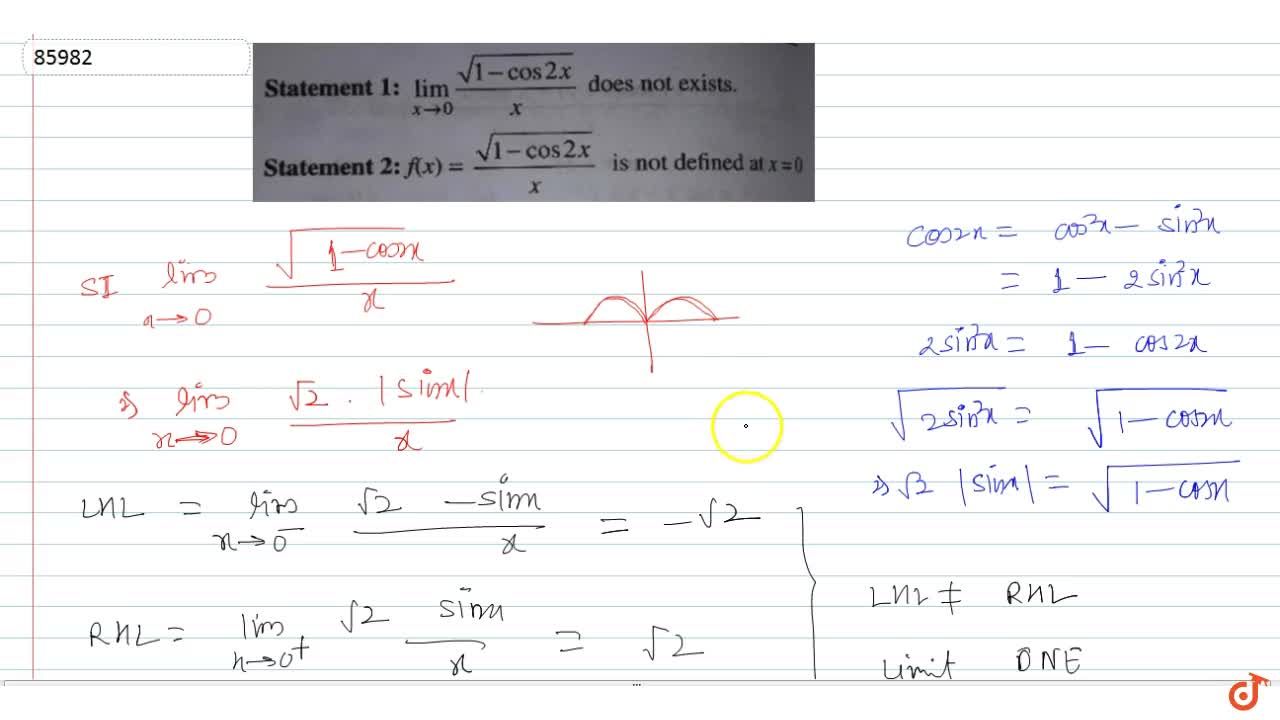 85982
Statement 1: lim x→0 √(1−cos2x)/x does not exists.
Statement 2: f(x) = √(1−cos2x)/x is not defined at x = 0
SI lim x→0 √(1−cosx)/x
⇒ lim x→0 √2 · |sinx|/x
LHL = lim x→0⁻ √2 −sinx/x = −√2
RHL = lim x→0⁺ √2 sinx/x = √2
cos2x = cos²x − sin²x
= 1 − 2sin²x
2sin²x = 1 − cos2x
√(2sin²x) = √(1−cos2x)
⇒ √2 |sinx| = √(1−cosx)
LHL ≠ RHL
Limit DNE